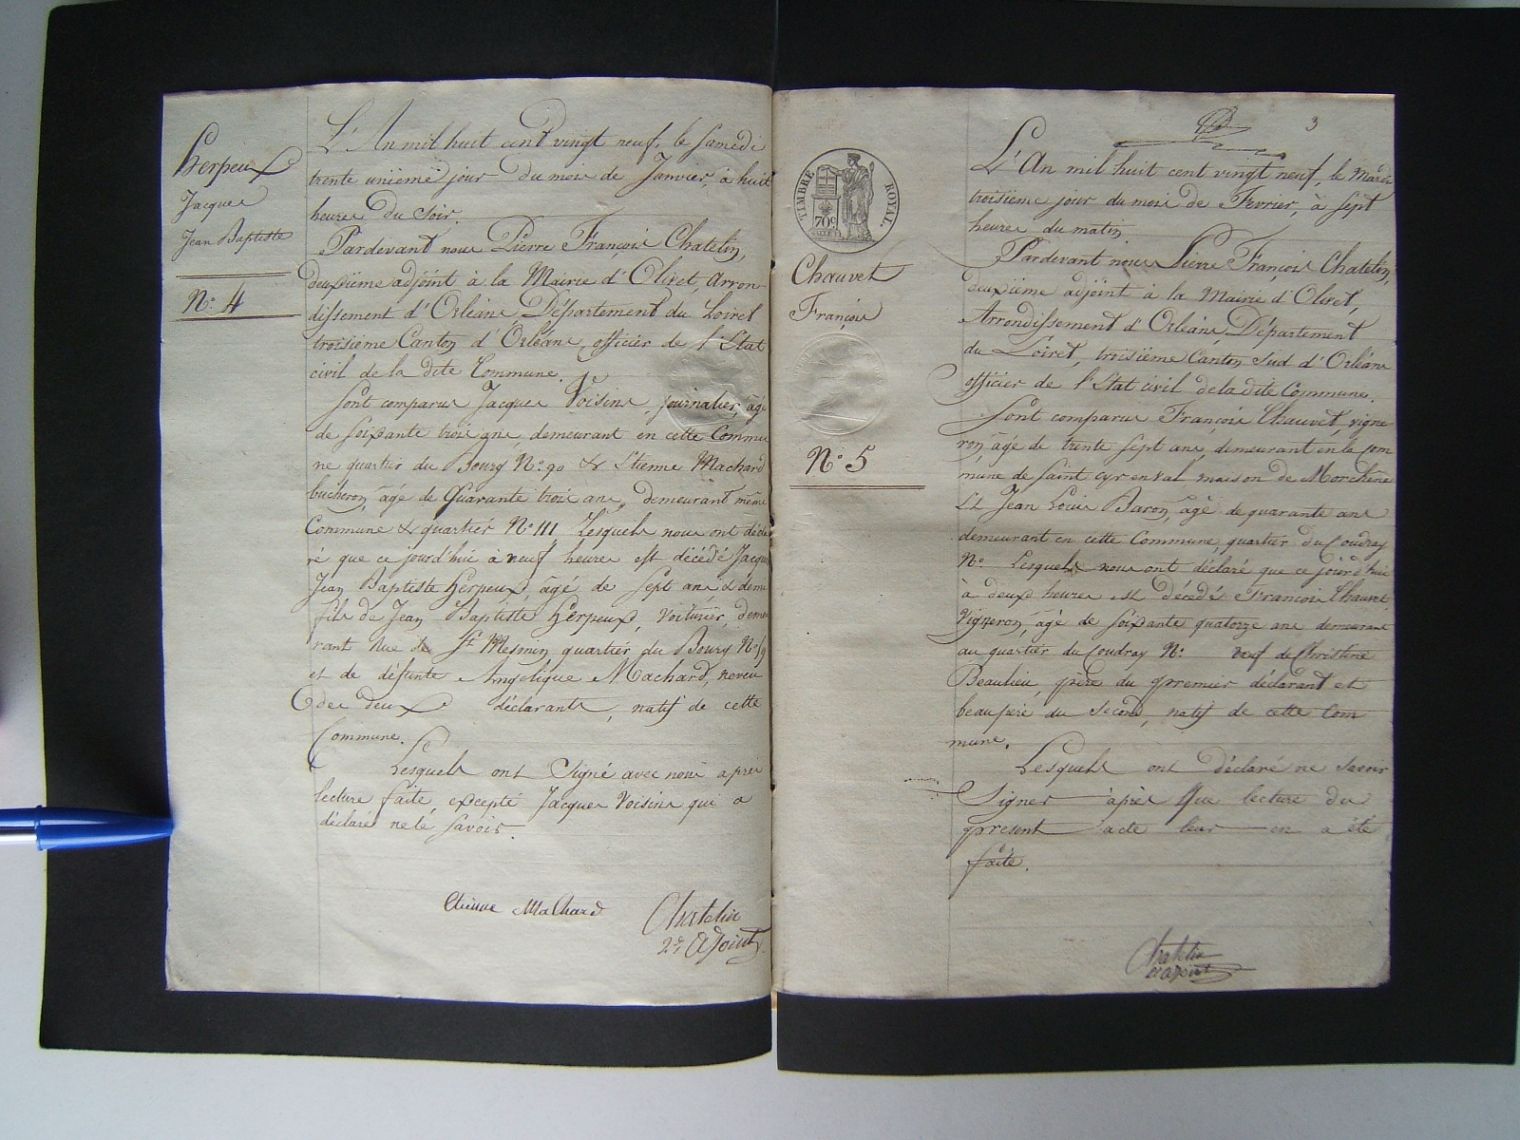 Herpeux
Jacques
Jean Baptiste
N° 4
L'An mil huit cent vingt neuf, le Samedi
trente unieme jour du mois de Janvier, à huit
heures du Soir.
Pardevant nous Pierre François Chatelin,
deuxième adjoint à la Mairie d'Olivet, Arron-
dissement d'Orléans Département du Loiret
troisième Canton d'Orléans, officier de l'Etat
civil de la dite Commune.
Sont comparus Jacques Voisins journalier, âgé
de Soixante trois ans, demeurant en cette Commu
ne quartier du Bourg N° 90 & Etienne Machard
bucheron, âgé de Quarante trois ans, demeurant même
Commune & quartier N° 111 Lesquels nous ont décla
ré que ce jourd'hui à neuf heures est décédé Jacques
Jean Baptiste Herpeux, âgé de Sept ans & demi
fils de Jean Baptiste Herpeux, Voiturier, demeu
rant Rue de St Mesmin quartier du Bourg N°
et de défunte Angélique Machard, neveu
des deux déclarants, natif de cette
Commune.
Lesquels ont Signé avec nous après
lecture faite, excepté Jacques Voisins qui a
déclaré ne le savoir.
Etienne Machard
Chatelin
2d. Adjoint
3
TIMBRE ROYAL.
70c
Chauvet
François
N° 5
L'An mil huit cent vingt neuf, le Mardi
troisième jour du mois de Fevrier, à Sept
heures du matin.
Pardevant nous Pierre François Chatelin,
deuxieme adjoint à la Mairie d'Olivet,
Arrondissement d'Orléans, Département
du Loiret, troisième Canton Sud d'Orléans
officier de l'Etat civil de la dite Commune.
Sont comparus François Chauvet, vigne
ron âgé de trente Sept ans, demeurant en la Com
mune de Saint Cyr en Val maison de Morchêne
Et Jean Louis Baron, âgé de quarante ans
demeurant en cette Commune, quartier du Coudray
N° Lesquels nous ont déclaré que ce jourd'hui
à deux heures est décédé François Chauvet
Vigneron, âgé de Soixante quatorze ans demeurant
au quartier du Coudray N° veuf de Christine
Beaulieu, père du premier déclarant et
beaupère du Second, natif de cette Com
mune.
Lesquels ont déclaré ne Savoir
Signer après que lecture du
present acte leur en a été
faite.
Chatelin
2d adjoint